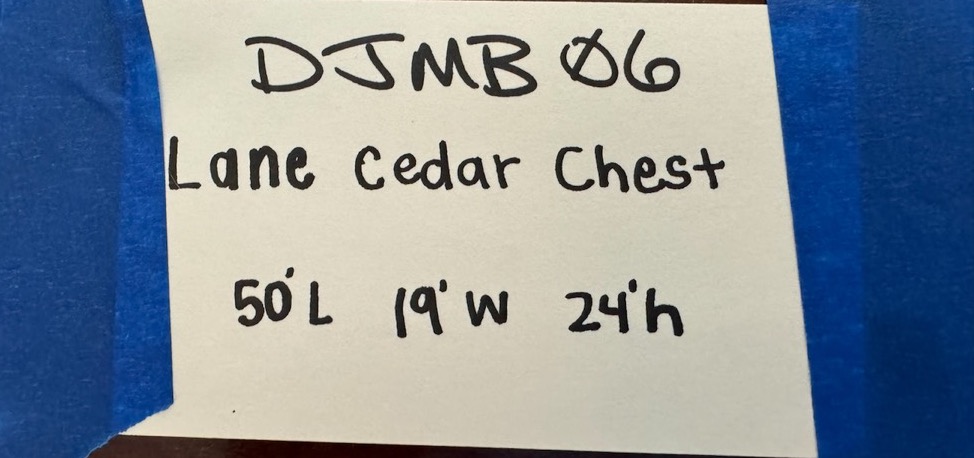 DJMB Ø6
Lane Cedar Chest
50'L 19'W 24'h